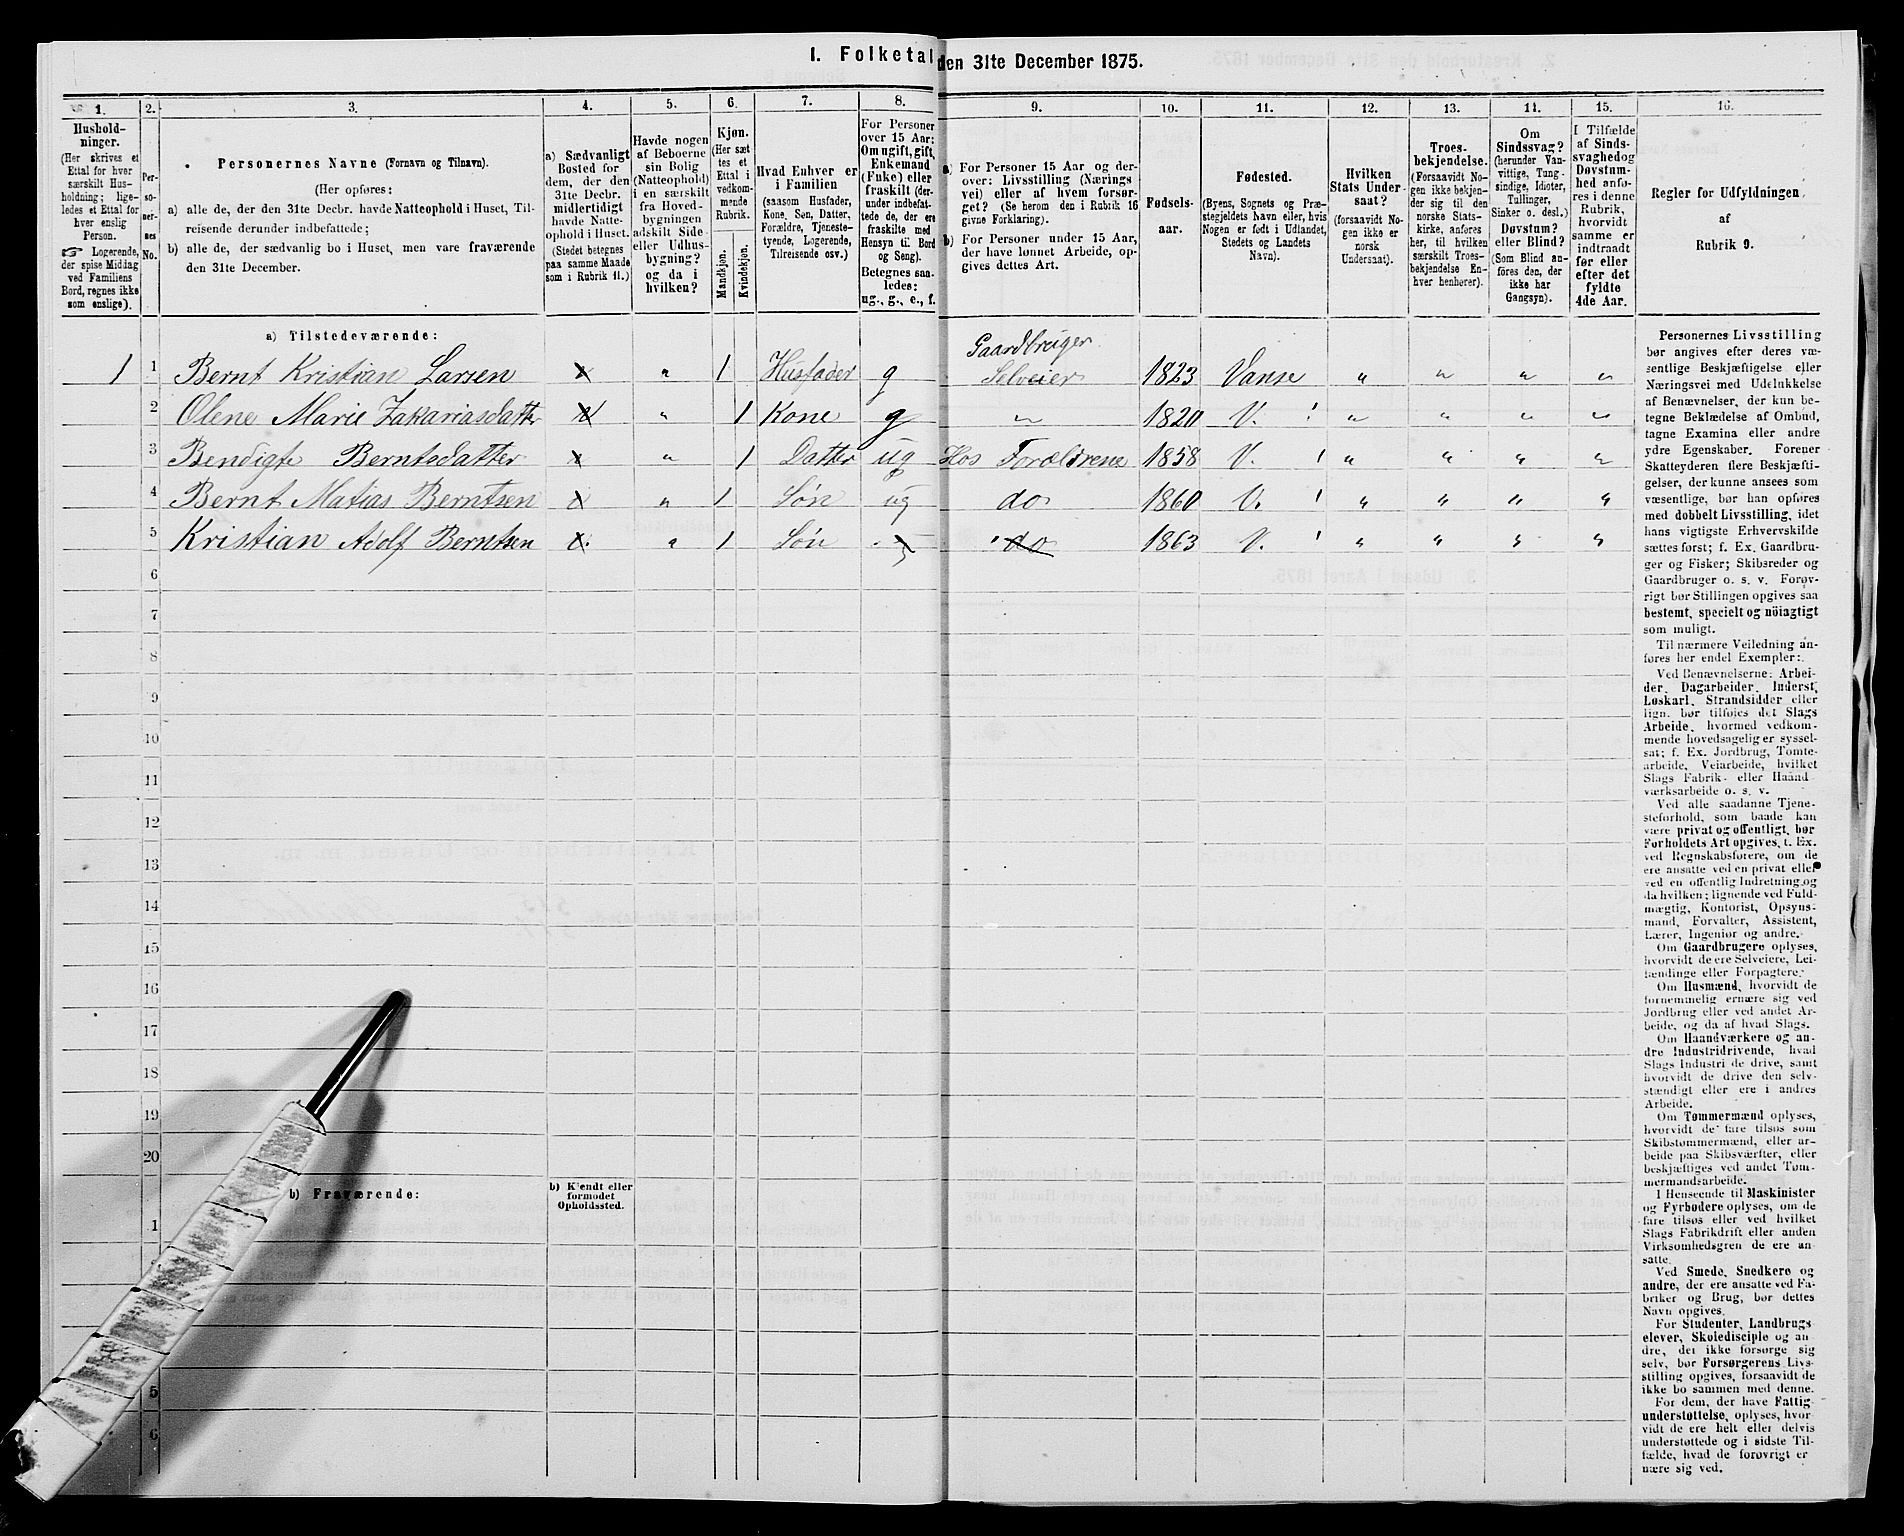 I. Folketal den 31te December 1875.
1.
2.
3.
4.
5.
6.
7.
8.
9.
10.
11.
12.
13.
14.
15.
16.
Hushold-
ninger.
(Her skrives et
Ettal for hver
særskilt Hus-
holdning; lige-
ledes et Ettal for
hver enslig
Person.
☞ Logerende,
der spise Middag
ved Familiens
Bord, regnes ikke
som enslige).
Per-
so-
ner-
nes
No.
Personernes Navne (Fornavn og Tilnavn).
(Her opføres:
a) alle de, der den 31te Decbr. havde Natteophold i Huset, Til-
reisende derunder indbefattede;
b) alle de, der sædvanlig bo i Huset, men vare fraværende
den 31te December.
a) Sædvanligt
Bosted for
dem, der den
31te Decbr.
midlertidigt
havde Natte-
ophold i Huset.
(Stedet betegnes
paa samme Maade
som i Rubrik 11.)
Havde nogen
af Beboerne
sin Bolig
(Natteophold)
i en særskilt
fra Hoved-
bygningen
adskilt Side-
eller Udhus-
bygning?
og da i
hvilken?
Kjøn.
(Her sæt
tes et
Ettal i
vedkom-
mende
Rubrik.
Mandkjøn.
Kvindekjøn.
Hvad Enhver er
i Familien
(saasom Husfader,
Kone, Søn, Datter,
Forældre, Tjeneste-
tyende, Logerende,
Tilreisende osv.)
For Personer
over 15 Aar:
Om ugift, gift,
Enkemand
(Fuke) eller
fraskilt (der-
under indbefat-
tede de, der ere
fraskilte med
Hensyn til Bord
og Seng).
Betegnes saa-
ledes:
ug., g., e., f.
a) For Personer 15 Aar og der-
over: Livsstilling (Nærings
vei) eller af hvem forsør-
get? (Se herom den i Rubrik 16
givne Forklaring).
b) For Personer under 15 Aar,
der have lønnet Arbeide, op-
gives dettes Art.
Fødsels-
aar.
Fødested.
(Byens, Sognets og Præ-
stegjeldets Navn eller, hvis
Nogen er født i Udlandet,
Stedets og Landets
Navn).
Hvilken
Stats Under-
saat?
(forsaavidt No-
gen ikke er
norsk
Undersaat).
Troes-
bekjendelse.
(Forsaavidt Nogen
ikke bekjen-
der sig til den
norske Stats-
kirke, anføres
her, til hvilken
særskilt Troes-
bekjendelse En-
hver henhører).
Om
Sindssvag?
(herunder Van-
vittige, Tung-
sindige, Idioter,
Tullinger,
Sinker o. desl.)
Døvstum?
eller Blind?
(Som Blind an-
føres den, der
ikke har
Gangsyn).
I Tilfælde
af Sinds-
svaghedog
Døvstum-
hed anfø-
res i denne
Rubrik,
hvorvidt
samme er
indtraadt
før eller
efter det
fyldte
4de Aar.
Regler for Udfyldningen
af
Rubrik 9.
a) Tilstedeværende:
Gaardbruger
1 1 Bernt Kristian Larsen x " 1 Husfader g Selveier 1823 Vanse " " " "
2 Olene Marie Zakariasdatter x " 1 Kone g " 1820 V. ! " " " "
3 Bendigte Berntsdatter x " 1 Datter ug Hos Forældrene 1858 V. ! " " " "
4 Bernt Matias Berntsen x " 1 Søn ug do 1860 V. ! " " " "
5 Kristian Adolf Berntsen x " 1 Søn do 1863 V. ! " " " "
6
7
8
9
10
11
12
13
14
15
16
17
18
19
20
b) Fraværende:
b) Kjendt eller
formodet
Opholdssted.
1
5
6
Personernes Livsstilling
bør angives efter deres væ-
sentlige Beskjæftigelse eller
Næringsvei med Udelukkelse
af Benævnelser, der kun be-
tegne Beklædelse af Ombud,
tagne Examina eller andre
ydre Egenskaber. Forener
Skatteyderen flere Beskjæfti-
gelser, der kunne ansees som
væsentlige, bør han opføres
med dobbelt Livsstilling, idet
hans vigtigste Erhvervskilde
sættes først; f. Ex. Gaardbru-
ger og Fisker; Skibsreder og
Gaardbruger o. s. v. Forøv-
rigt bør Stillingen opgives saa
bestemt, specielt og nöiagtigt
som muligt.
Til nærmere Veiledning an-
føres her endel Exempler:
Ved Benævnelserne: Arbei-
der, Dagarbeider, Inderst,
Løskarl, Strandsidder eller
lign. bør tilføies det Slags
Arbeide, hvormed vedkom-
mende hovedsagelig er syssel-
sat; f. Ex. Jordbrug, Tomte-
arbeide, Veiarbeide, hvilket
Slags Fabrik- eller Haand
værksarbeide o. s. v.
Ved alle saadanne Tjene-
steforhold, som baade kan
være privat og offentligt, bør
Forholdets Art opgives, f. Ex.
ved Regnskabsførere, om de
ere ansatte ved en privat eller
ved en offentlig Indretning og
da hvilken; lignende ved Fuld-
mægtig, Kontorist, Opsyns-
mand, Forvalter, Assistent,
Lærer, Ingeniør og andre.
Om Gaardbrugere oplyses,
hvorvidt de ere Selveiere, Lei-
lændinge eller Forpagtere.
Om Husmænd, hvorvidt de
fornemmelig ernære sig ved
Jordbrug eller ved andet Ar-
beide, og da af hvad Slags.
Om Haandværkere og an-
dre Industridrivende, hvad
Slags Industri de drive, samt
hvorvidt de drive den selv-
stændigt eller ere i andres
Arbeide.
Om Tømmermænd oplyses,
hvorvidt de fare tilsøs som
Skibstømmermænd, eller ar-
beide paa Skibsværfter, eller
beskjæftiges ved andet Tøm-
mermandsarbeide.
I Henseende til Maskinister
og Fyrbødere oplyses, om de
fare tilsøs eller ved hvilket
Slags Fabrikdrift eller anden
Virksomhedsgren de ere an-
satte.
Ved Smede, Snedkere og
andre, der ere ansatte ved Fa-
briker og Brug, bør dettes
Navn opgives.
For Studenter, Landbrugs
elever, Skoledisciple og an
dre, der ikke forsørge sig
selv, bør Forsørgerens Livs-
stilling opgives, forsaavidt de
ikke bo sammen med denne.
For dem, der have Fattig
understøttelse, oplyses, hvor-
vidt de ere helt eller delvis
understøttede og i sidste Til-
fælde, hvad de forøvrigt er
nære sig ved.